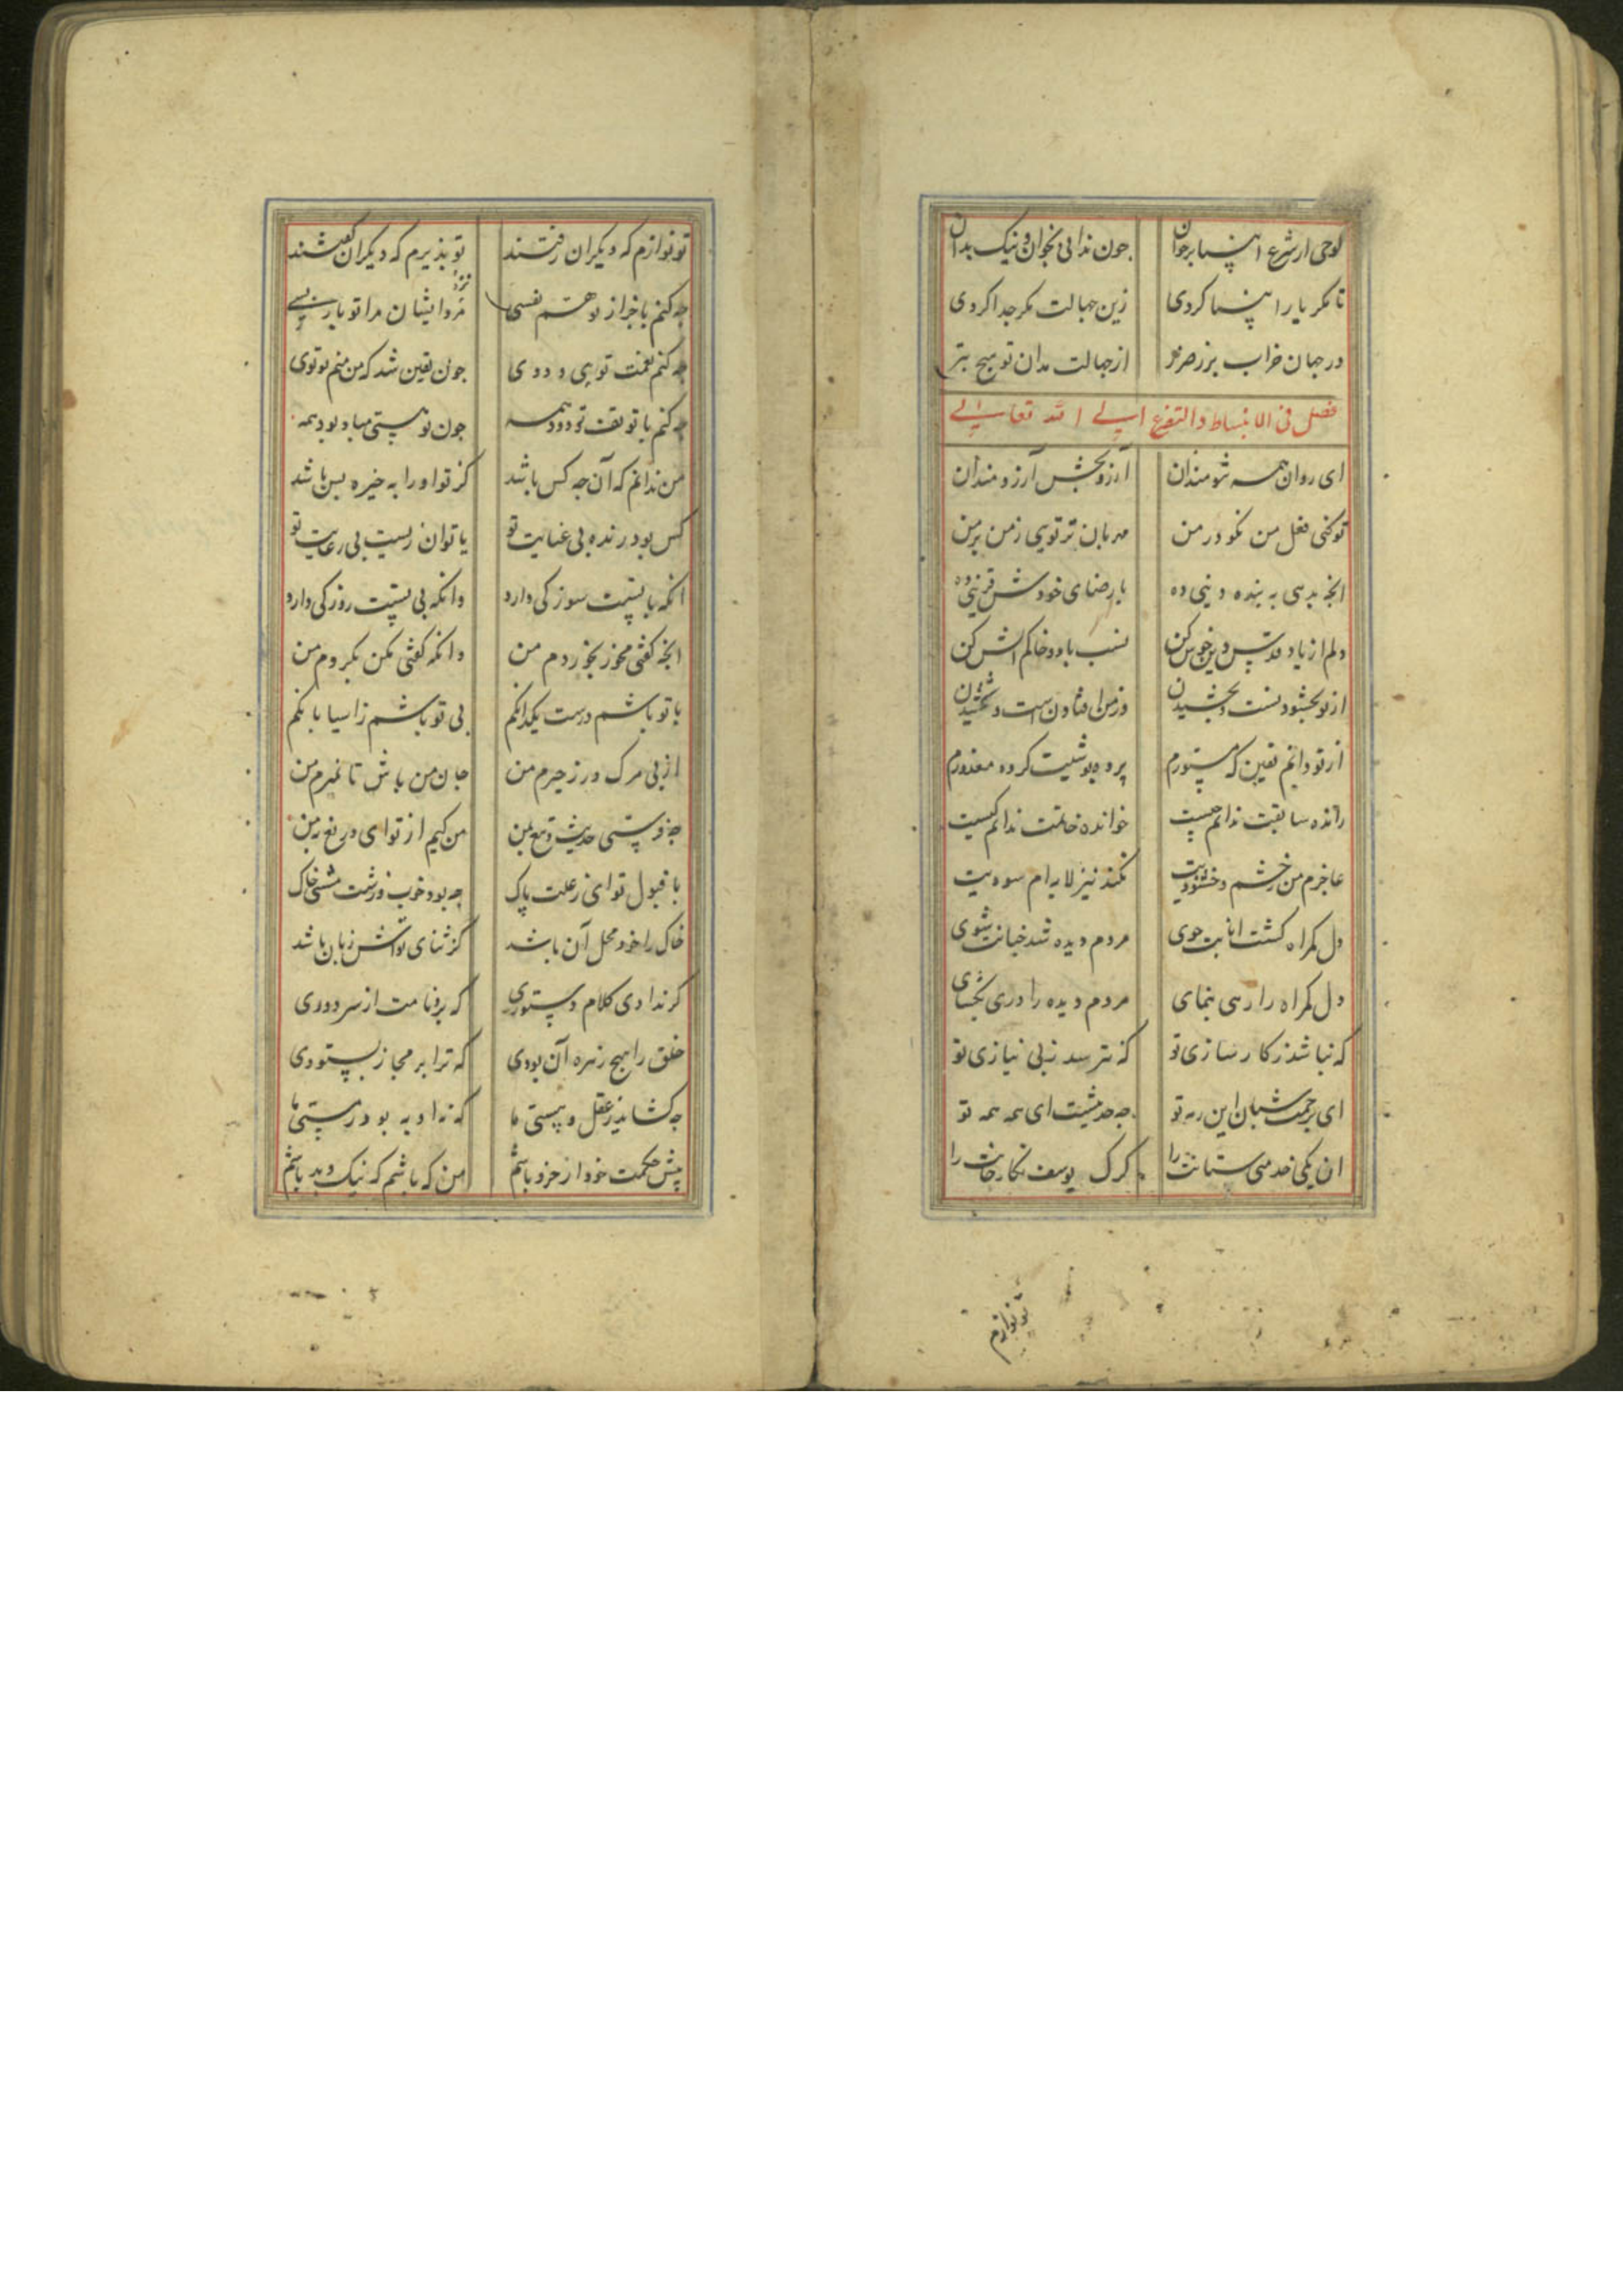 لوحی از شرع انبیا برخوان چون ندانی بخوان و نیک بدان
تا مگر یار انبیا گردی زین جهالت مگر جدا گردی
در جهان خراب پر ز ضرر از جهالت مدان تو هیچ بتر
فصل فی الانبساط و التضرع الی الله تعالی
ای روان همه تنومندان آرزو بخش آرزومندان
تو کنی فعل من نکو در من مهربان تر تویی ز من بر من
انچه بدهی به بنده دینی ده با رضای خودش قرینی ده
دلم از یاد قدس دین خوش کن نسب باد و خاکم آتش کن
از تو بخشودنست و بخشیدن وز من افتادن است و شخشیدن
از تو دانم یقین که مستورم پرده پوشیت کرده مغرورم
رانده سابقت ندانم چیست خوانده خاتمت ندانم کیست
عاجزم من ز خشم و خشنودیت نکند نیز لابه ام سودیت
دل گمراه گشت انابت جوی مردم دیده شد خیانت شوی
دل گمراه را رهی بنمای مردم دیده را دری بگشای
که نباشد ز کارسازی تو که نترسد ز بی نیازی تو
ای برحمت شبان این رمه تو چه حدیثست ای همه همه تو
ان یکی خدمتی ستانت را گرگ یوسف نگارخانت را
تو نوازم
تو نوازم که دیگران رفتند تو پذیرم که دیگران گفتند
چه کنم با جز از تو هم نفسی مرده ایشان مرا تو یار بسی
چه کنم نعمت تویی و دوی چون یقین شد که من منم تو توی
چه کنم با تو تف تو دود همه چون تو هستی مباد بود همه
من ندانم که آن چه کس باشد کز تو او را به خیره بس باشد
کس بود زنده بی عنایت تو یا توان زیست بی رعایت تو
انکه با تست سوز کی دارد وانکه بی تست روز کی دارد
انچه گفتی مخور بخوردم من وانکه گفتی مکن بکردم من
با تو باشم درست یکدانگم بی تو باشم ز اسیا بانگم
از پی مرگ در زحیرم من جان من باش تا نمیرم من
چه فرستی حدیث و تیغ بمن من کیم از تو ای دریغ بمن
با قبول تو ای ز علت پاک چه بود خوب و زشت مشتی خاک
خاک را خود محل آن باشد کز ثنای تواش زبان باشد
گر ندادی کلام دستوری که بر نامت از سر دوری
خلق را هیچ زهره آن بودی که ترا بر مجاز بستودی
چه گشاید ز عقل و مستی ما که نه او به بود ز هستی ما
پیش حکمت خود از خرد باشم من که باشم که نیک و بد باشم